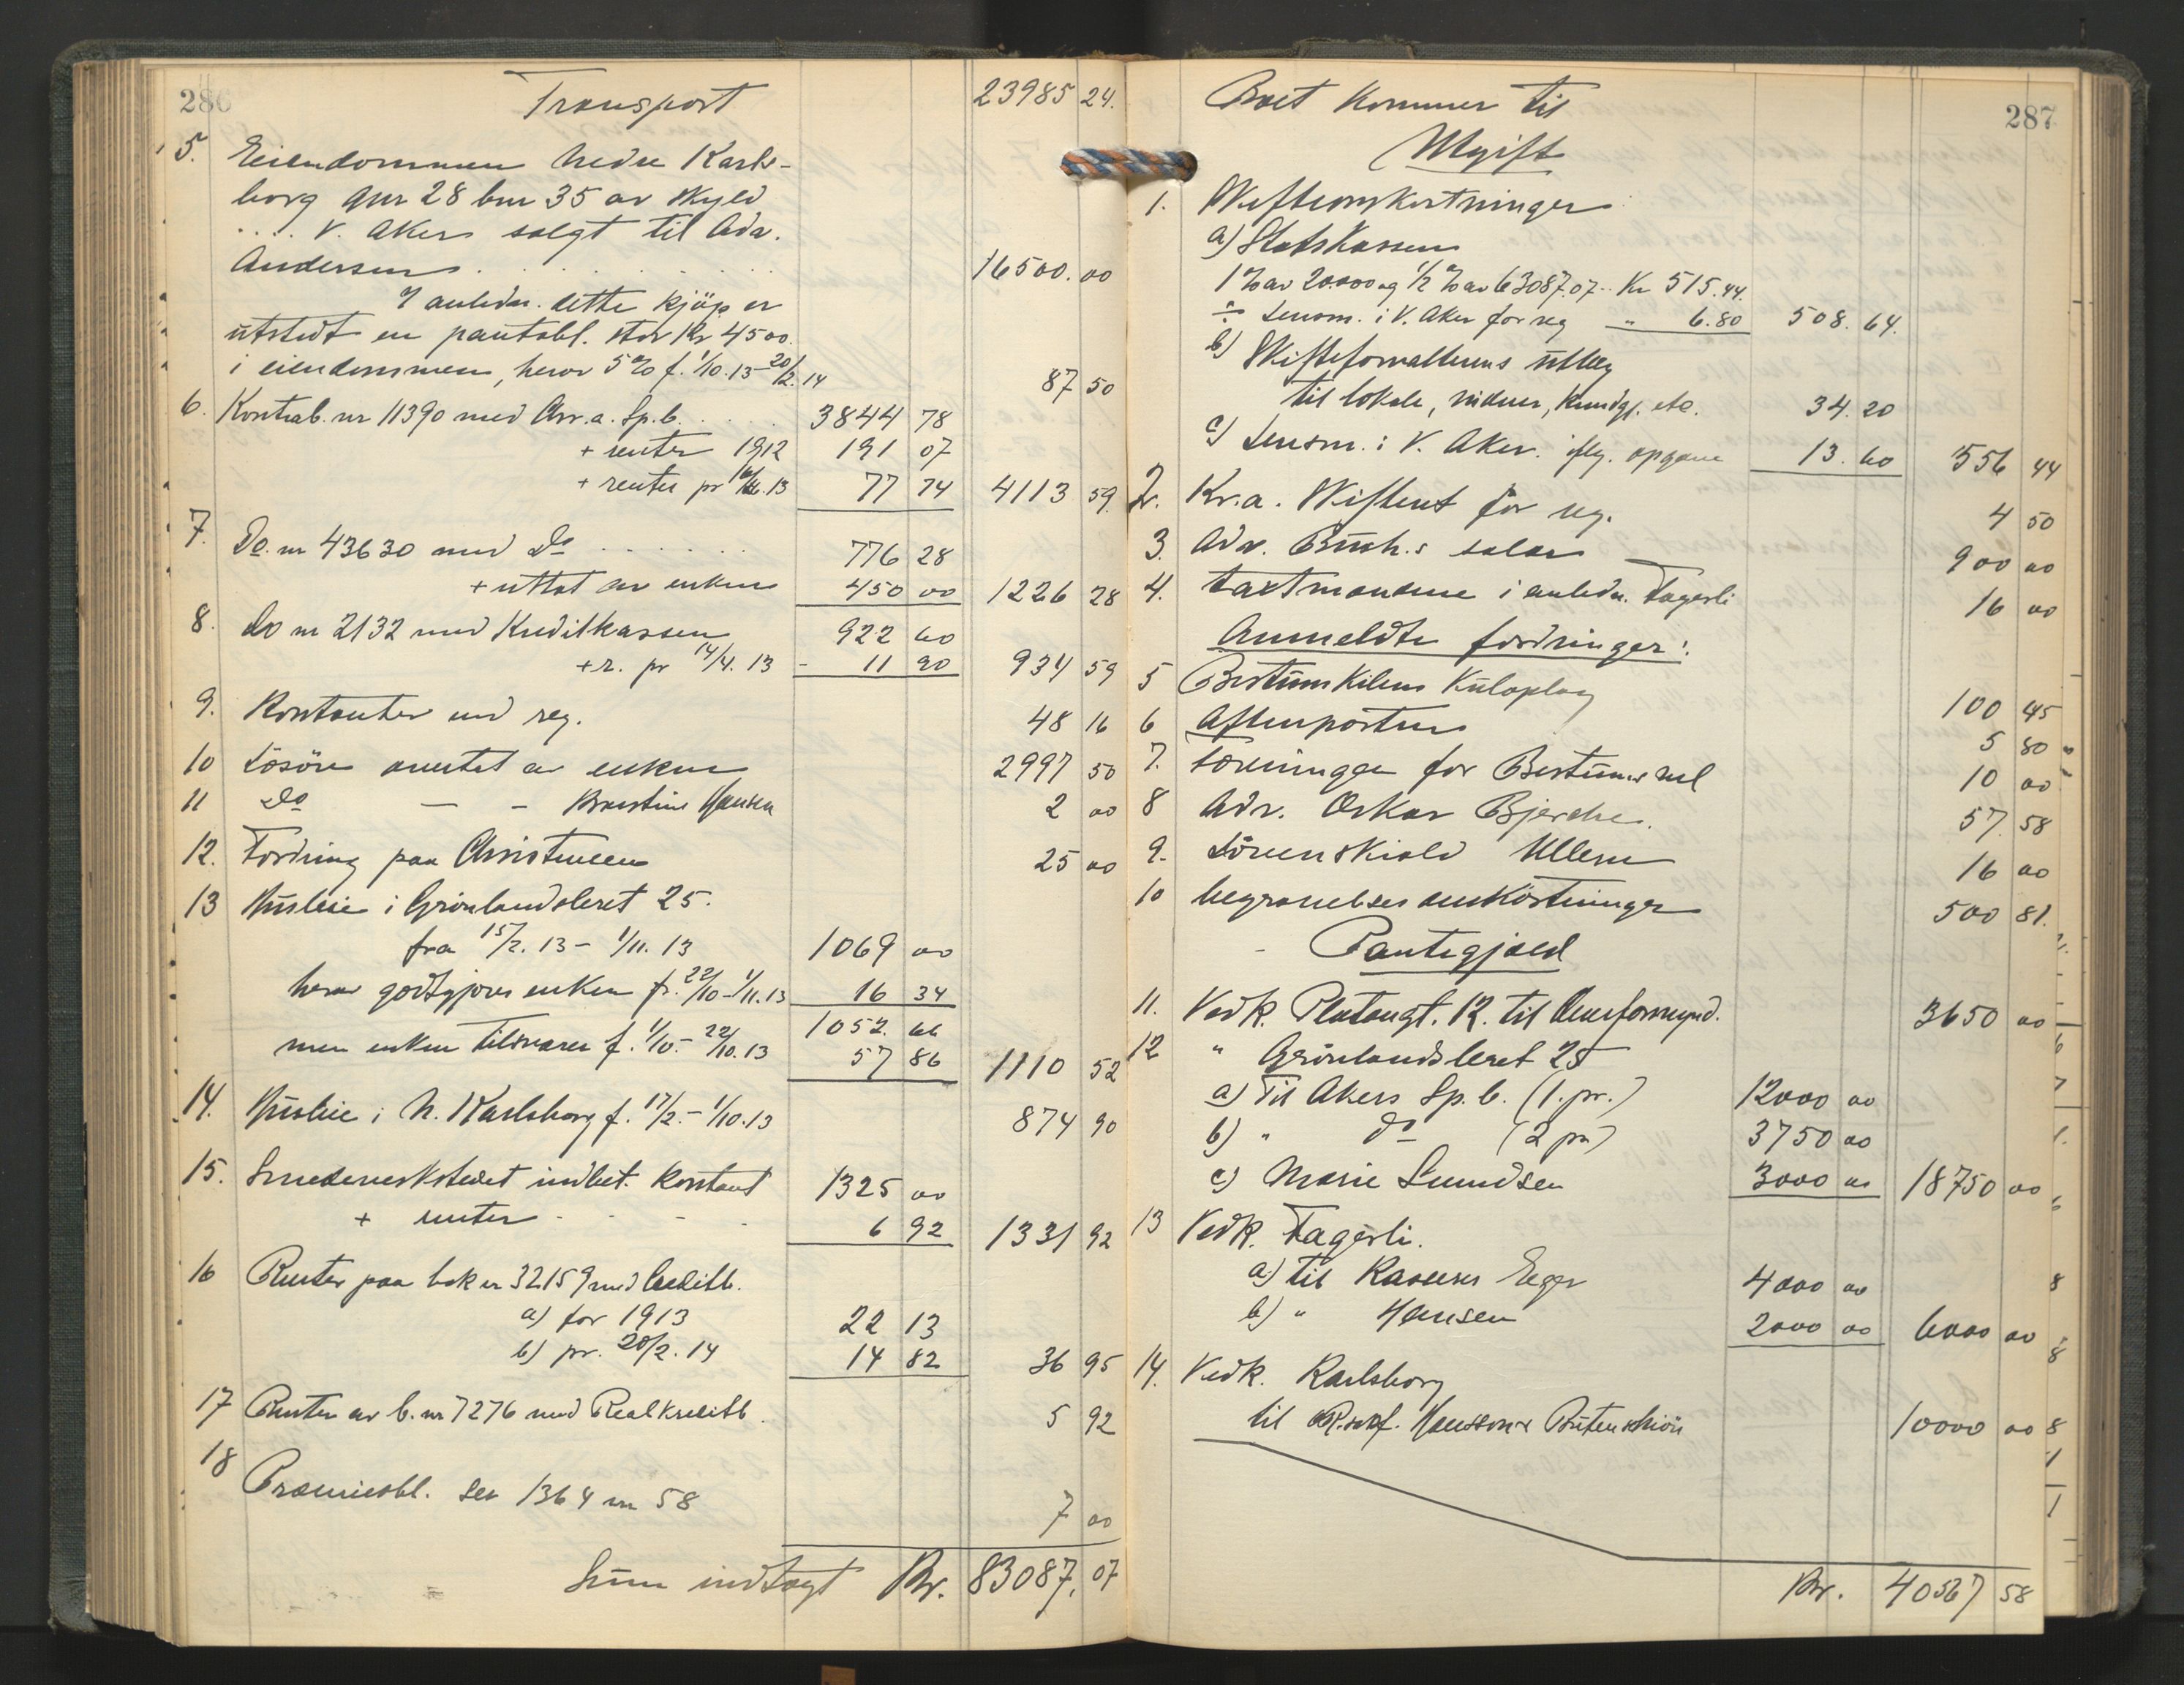 286
Transport 23985 24.
5. Eiendommen Nedre Karls-
borg gnr 28 bnr 35 av skyld
.... V. Aker solgt til Adv.
Andersen . . . . . . . . 16500.00
I anledn. dette kjöp er
utstedt en pantobl. stor Kr 4500.
i eiendommen, herav 5% f. 1/10.13-20/2.14 87 50
6. Kontrab. nr 11390 med Chr.a. Sp.b. . . . . 3844 78
+ renter 1912 191 07
+ renter pr .13 77 74 4113 59
7. Do. nr 43630 med Do . . . . . . 776 28
+ uttat av enken 450 00 1226 28
8. do nr 2132 med Kreditkassen 922 60
+ r. pr 14/4. 13 - 11 90 934 59
9. Kontanter ved reg. 48 16
10 Lösöre overtat av enken 2997 50
11 do — - Hansen 2 00
12. Fordring paa Christensen 25 00
13 Husleie i Grönlandsleret 25.
fra 15/2. 13 - 1/11. 13 1069 00
herav godtgjöres enken f. 22/10-1/11.13 16 34
1052. 66
men enken tilsvarer f. 1/10.- 22/10.13 57 86 1110 52
14. Husleie i N. Karlsborg f. 17/2.- 1/10.13 874 90
15. Smedeverkstedet indbet. kontant 1325 00
+ renter - - - - 6 92 1331 92
16 Renter paa bok nr 32159 med Creditb.
a) for 1913 22 13
b) pr. 20/2. 14 14 82 36 95
17 Renter av b. nr 7276 med Realkreditb. 5 92
18 Præmieobl. ser 1364 nr 58 7 00
Sum indtægt Kr. 83087. 07
287
Boet kommer til
Utgift
1. Skifteomkostninger
a) Statskassen
1 % av 20.000 og 1/2 % av 63087.07.. Kr 515.44.
÷ Lensm. i V. Aker for reg — " 6.80 508. 64.
b) Skifteforvalterens utlæg
til lokale, vidner, kundgj. etc. 34. 20
c) Lensm. i V. Aker iflg. opgave 13. 60 556 44
2. Kr.a. Skifteret for reg. 4 50
3. Adv. Buch.s salær — 900 00
4. taxtmændene i anledn. Fagerli 16 00
Anmeldte fordringer:
5 Bestumkilens Kuloplag 100 45
6 Aftenposten 5 80
7. foreningen for Bestums vel 10 00
8 Adv. Oskar Bjercke. 57. 58
9. Lövenskiold Ullern 16 00
10 begravelsesomkostninger 500 81.
- Pantegjæld
11. Vedk. Platougt. 12. til Overformynd. 3650 00
12 " Grönlandsleret 25
a) Til Akers Sp.b. (1. pr.) 12000 00
b) " do (2 pr) 3750 00
c) Marie Lundsen 3000 00 18750 00
13 Vedk. Fagerli.
a) til Kasserer Eeger 4000 00
b) " Hansen 2000 00 6000 00
14. Vedk. Karlsborg
til Butenschön 10000 00
Kr. 40567 58